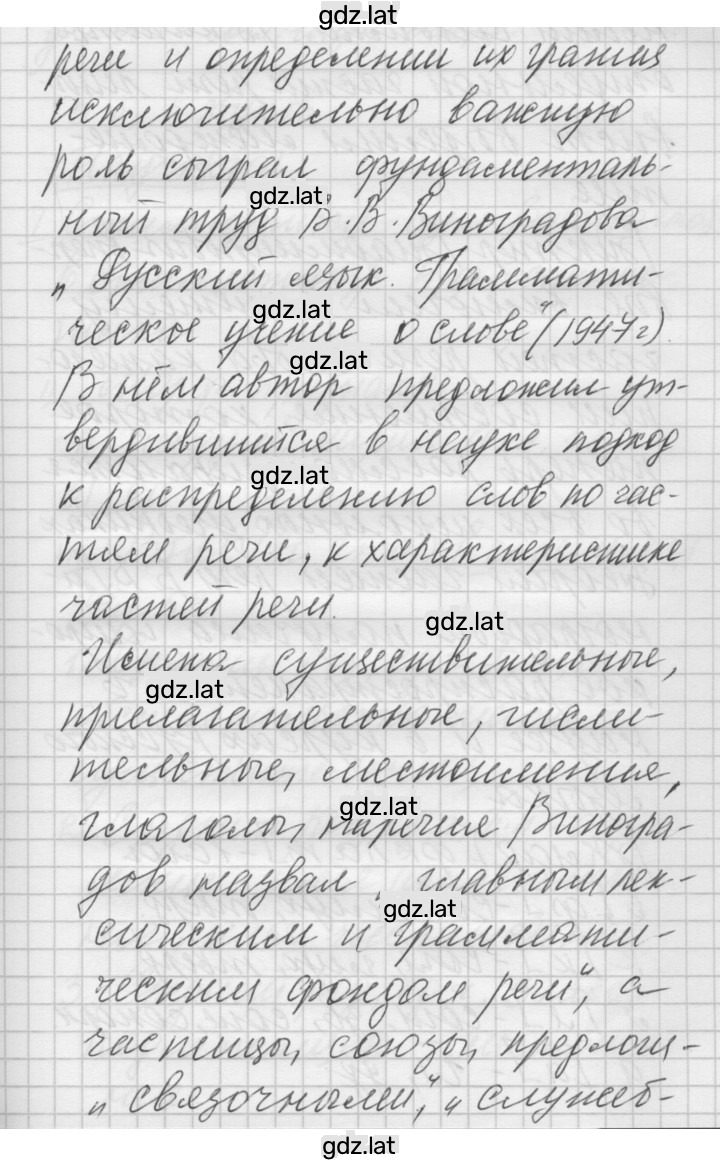 gdz.lat
речи и определении их грания
исключительно важную
роль сыграл фундаменталь-
gdz.lat
ный труд В.В. Виноградова
„Русский язык. Граммати-
gdz.lat
ческое учение о слове“ (1947г).
gdz.lat
В нём автор предложил ут-
вердившийся в науке подход
gdz.lat
к распределению слов по час-
тям речи, к характеристике
частей речи.
gdz.lat
Имена существительные,
gdz.lat
прилагательные, числи-
тельные, местоимения,
gdz.lat
глаголы, наречия Виногра-
дов назвал „главным лек-
gdz.lat
сическим и граммати-
ческим фондом речи“, а
частицы, союзы, предлоги -
„связочными“, „служеб-
gdz.lat